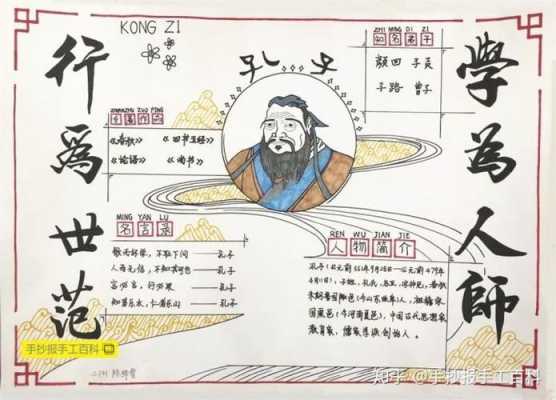 KONG ZI
孔子
學為人師
行爲世范
ZHI MING DI ZI
知名弟子
颜回 子贡
子路 曾子
ZHUANZHU ZUO PING
《春秋》 《四书五经》
《论语》 《尚书》
MING YAN LU
名言录
敏而好学,不耻下问 —— 孔子
人而无信,不知其可也 —— 孔子
言必信,行必果 —— 孔子
知者乐水,仁者乐山 —— 孔子
REN WU JIAN JIE
人物简介
孔子(公元前551年9月28日—公元前479年
4月11日),子姓,孔氏,名丘,字仲尼,春秋
末期鲁国陬邑(今山东曲阜)人,祖籍宋
国栗邑(今河南夏邑),中国古代思想家
教育家,儒家学派创始人。
手抄报手工百科
知乎 @手抄报手工百科